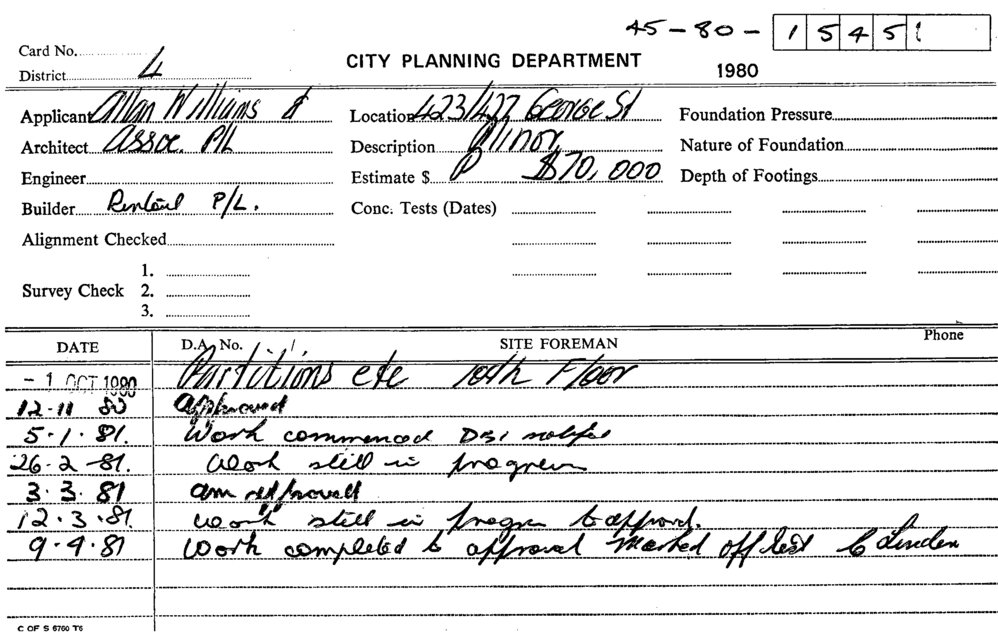 45-80- 1 5 4 5 1
Card No.
District 4
CITY PLANNING DEPARTMENT
1980
Applicant Allan Williams &
Architect Assoc. P/L
Engineer
Builder P/L.
Alignment Checked
Survey Check 1.
2.
3.
Location 423/427 George St
Description Minor
Estimate $ P $70,000
Conc. Tests (Dates)
Foundation Pressure
Nature of Foundation
Depth of Footings
DATE D.A. No. SITE FOREMAN Phone
- 1 OCT 1980 Partitions etc 10th Floor
12·11 80 approved
5·1·81. Work commenced DBI
26·2-81. Work still in progress
3·3·81 am approved
12·3·81. work still in progress to approval.
9·4·81 Work completed to approval marked off list C Linden
C OF S 6760 T6